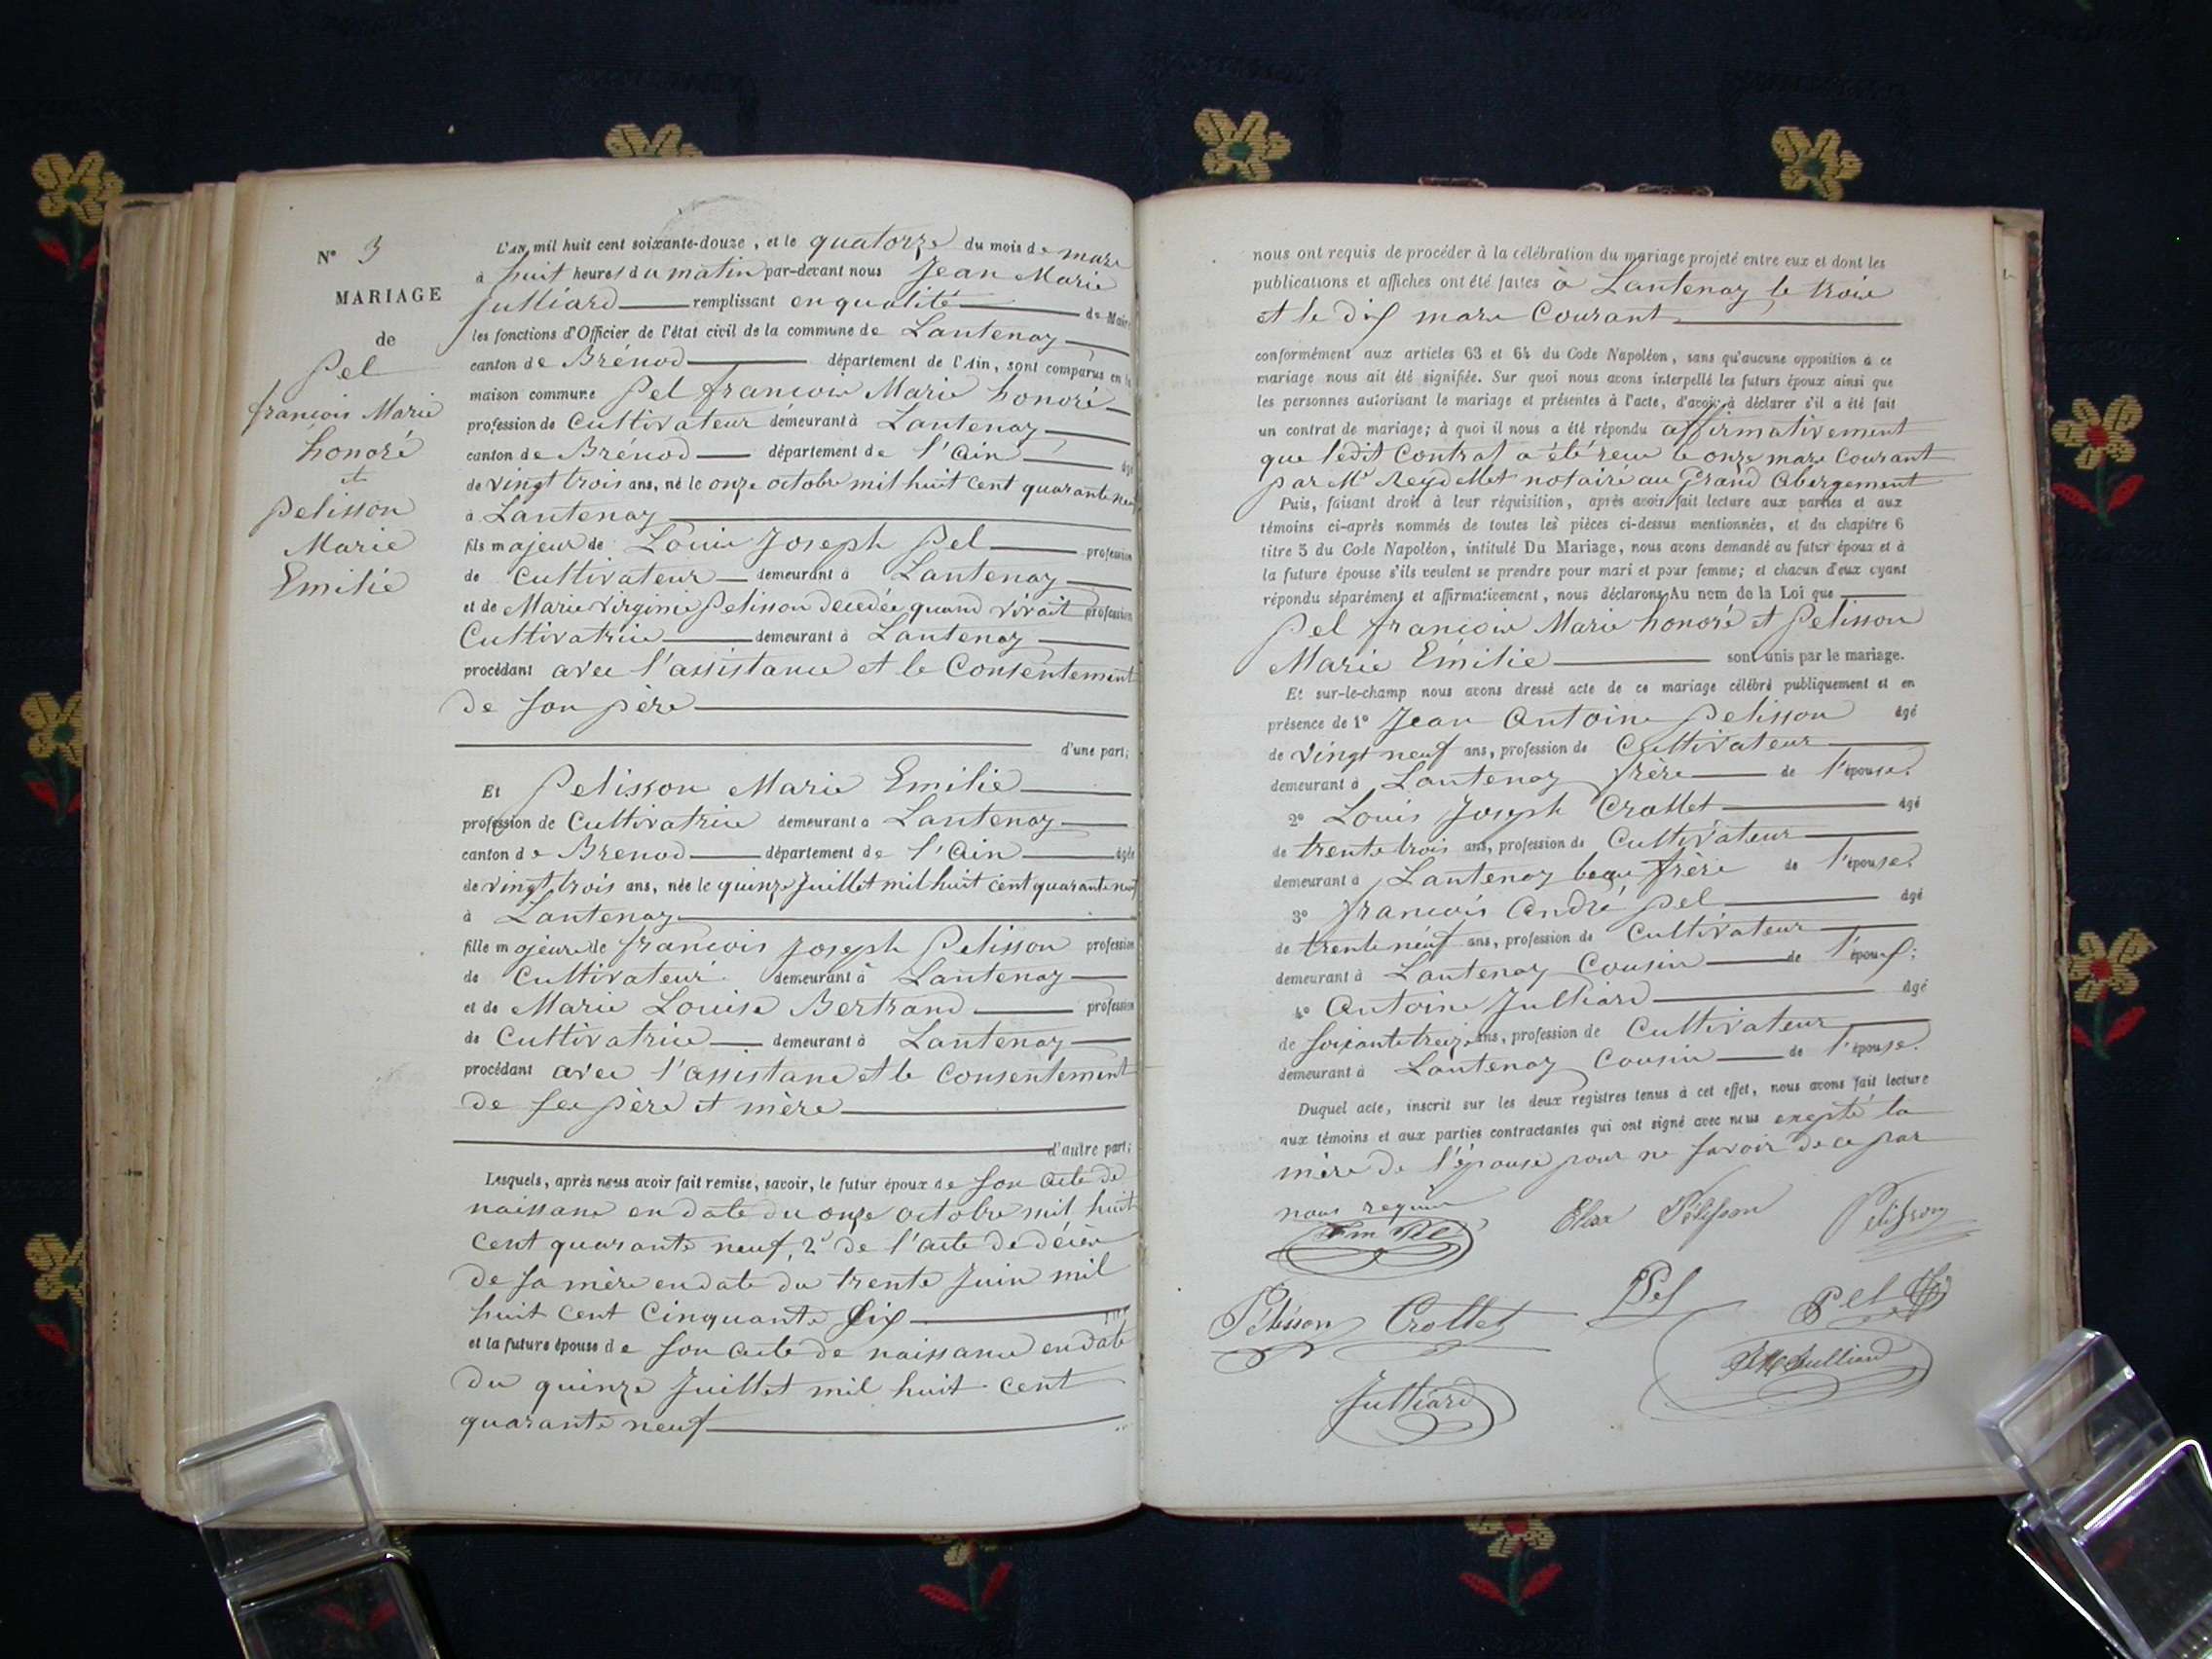 N° 3
MARIAGE
de
Pel
francois Marie
honoré
et
Pelisson
Marie
Emilie
L'AN mil huit cent soixante-douze, et le quatorze du mois de mars
à huit heures du matin par-devant nous Jean Marie
Julliard remplissant en qualité de Maire
les fonctions d'Officier de l'état civil de la commune de Lantenay
canton de Brénod département de l'Ain, sont comparus en la
maison commune Pel francois Marie honoré
profession de Cultivateur demeurant à Lantenay
canton de Brénod département de l'Ain âgé
de vingt trois ans, né le onze octobre mil huit cent quarante neuf
à Lantenay
fils majeur de Louis Joseph Pel profession
de Cultivateur demeurant à Lantenay
et de Marie Virginie Pelisson decedée quand vivait profession
Cultivatrice demeurant à Lantenay
procédant avec l'assistance et le Consentement
de son père
d'une part;
Et Pelisson Marie Emilie
profession de Cultivatrice demeurant à Lantenay
canton de Brenod département de l'Ain âgée
de vingt trois ans, née le quinze Juillet mil huit cent quarante neuf
à Lantenay
fille majeure de francois Joseph Pelisson profession
de Cultivateur demeurant à Lantenay
et de Marie Louise Bertrand profession
de Cultivatrice demeurant à Lantenay
procédant avec l'assistance et le Consentement
de ses père et mère
d'autre part;
Lesquels, après nous avoir fait remise, savoir, le futur époux de son acte de
naissance en date du onze octobre mil huit
cent quarante neuf, 2° de l'acte de décès
de sa mère en date du trente Juin mil
huit cent Cinquante Six
et la future épouse de son acte de naissance en date
du quinze Juillet mil huit cent
quarante neuf
nous ont requis de procéder à la célébration du mariage projeté entre eux et dont les
publications et affiches ont été faites à Lantenay le trois
et le dix mars Courant
conformément aux articles 63 et 64 du Code Napoléon, sans qu'aucune opposition à ce
mariage nous ait été signifiée. Sur quoi nous avons interpellé les futurs époux ainsi que
les personnes autorisant le mariage et présentes à l'acte, d'avoir à déclarer s'il a été fait
un contrat de mariage; à quoi il nous a été répondu affirmativement
que ledit Contrat a été reçu le onze mars Courant
par Me Reydellet notaire au Grand Abergement
Puis, faisant droit à leur réquisition, après avoir fait lecture aux parties et aux
témoins ci-après nommés de toutes les pièces ci-dessus mentionnées, et du chapitre 6
titre 5 du Code Napoléon, intitulé Du Mariage, nous avons demandé au futur époux et à
la future épouse s'ils veulent se prendre pour mari et pour femme; et chacun d'eux ayant
répondu séparément et affirmativement, nous déclarons Au nom de la Loi que
Pel francois Marie honoré et Pelisson
Marie Emilie sont unis par le mariage.
Et sur-le-champ nous avons dressé acte de ce mariage célébré publiquement et en
présence de 1° Jean Antoine Pelisson âgé
de vingt neuf ans, profession de Cultivateur
demeurant à Lantenay frère de l'épouse.
2° Louis Joseph Crollet âgé
de trente trois ans, profession de Cultivateur
demeurant à Lantenay beau frère de l'épouse.
3° francois André Pel âgé
de trente neuf ans, profession de Cultivateur
demeurant à Lantenay Cousin de l'époux;
4° Antoine Julliard âgé
de soixante treize ans, profession de Cultivateur
demeurant à Lantenay Cousin de l'épouse.
Duquel acte, inscrit sur les deux registres tenus à cet effet, nous avons fait lecture
aux témoins et aux parties contractantes qui ont signé avec nous excepté la
mère de l'épouse pour ne savoir de ce par
nous requise
Pélisson Pelisson
Pelisson Crollet Pel Pel
Julliard
Julliard